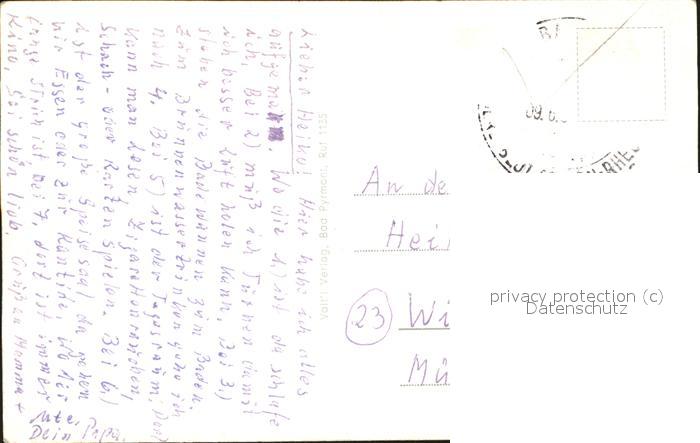 Lieber Heino! Hier habe ich alles
aufgema Wo die 1) ist da schlafe
ich, Bei 2) muß ich Turnen damit
ich besser Luft holen kann, Bei 3.)
stehen die Badewannen zum Baden,
Zum Brunnenwassertrinken gehe ich
nach 4. Bei 5) ist der Tagesraum, Dort
kann man Lesen, Zigaretten rauchen,
Schach- oder Karten Spielen. Bei 6.)
ist der große Speisesaal da gehen
wir Essen oder zur Kantine, Wo der
lange Strich ist bei 7, dort ist immer
Kino, Sei schön lieb. Grüße Mamma +
Ute.
Dein Papa.
Volti Verlag, Bad Pyrmont, Ruf 1155
09.6.
An de
Hei
23 Wi
Mü
privacy protection (c)
Datenschutz